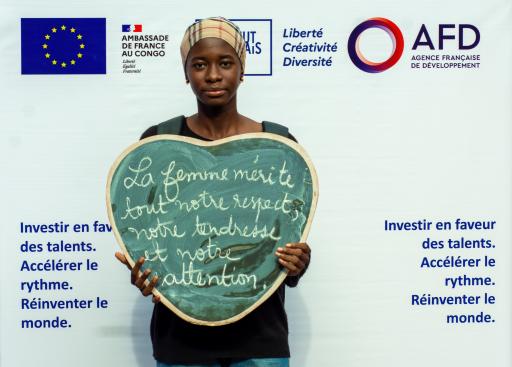 AMBASSADE
DE FRANCE
AU CONGO
Liberté
Égalité
Fraternité
Liberté
Créativité
Diversité
AFD
AGENCE FRANÇAISE
DE DÉVELOPPEMENT
La femme mérite
tout notre respect,
notre tendresse
et notre
attention.
Investir en fav
des talents.
Accélérer le
rythme.
Réinventer le
monde.
Investir en faveur
des talents.
Accélérer le
rythme.
Réinventer le
monde.